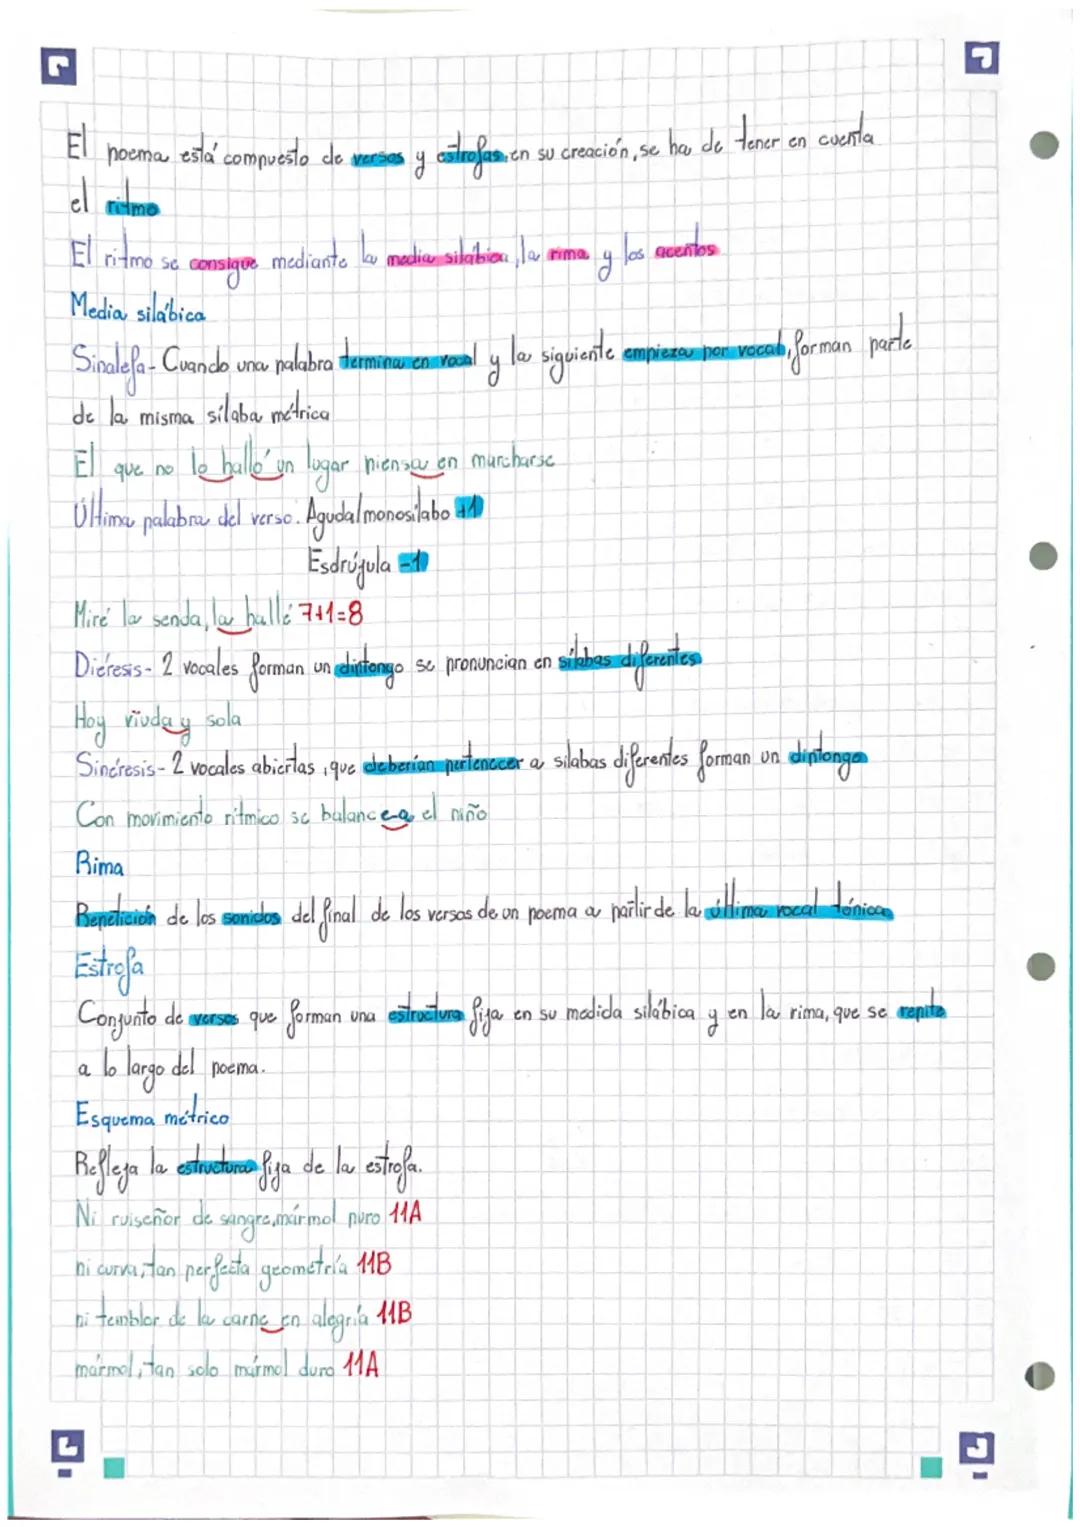 El poema está compuesto de versos y estrofas, en su creación, se ha de tener en cuenta
el ritmo
El ritmo se consigue mediante la media silábica, la rima y los acentos
Media silábica
Sinalefa- Cuando una palabra termina en vocal y la siguiente empieza por vocal, forman parte
de la misma sílaba métrica
El que no lo halló un lugar piensa en marcharse
Última palabra del verso. Aguda/monosílabo +1
Esdrújula -1
Miré la senda, la hallé 7+1=8
Diéresis- 2 vocales forman un diptongo se pronuncian en sílabas diferentes
Hoy viuda y sola
Sinéresis- 2 vocales abiertas, que deberían pertenecer a sílabas diferentes forman un diptongo
Con movimiento rítmico se balancea el niño
Rima
Repetición de los sonidos del final de los versos de un poema a partir de la última vocal tónica
Estrofa
Conjunto de versos que forman una estructura fija en su medida silábica y en la rima, que se repite
a lo largo del poema.
Esquema métrico
Refleja la estructura fija de la estrofa.
Ni ruiseñor de sangre, mármol puro 11A
ni curva, tan perfecta geometría 11B
ni temblor de la carne en alegría 11B
mármol, tan solo mármol duro 11A